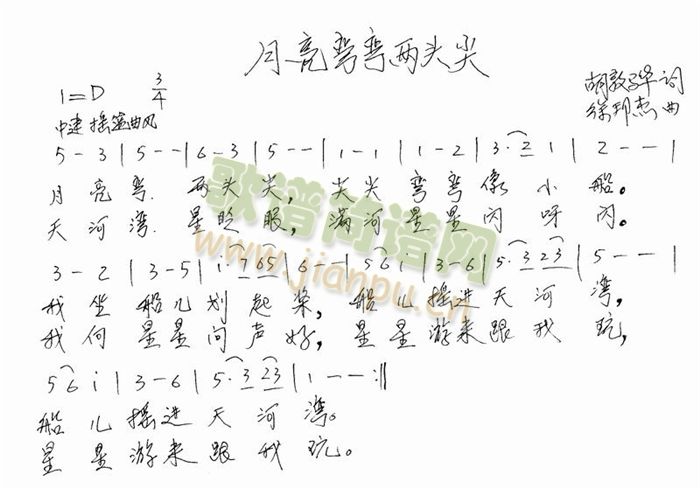 月亮弯弯两头尖
1=D 3/4
胡敦骅 词
中速 摇篮曲风
徐邦杰 曲
5 - 3 | 5 - - | 6 - 3 | 5 - - | 1 - 1 | 1 - 2 | 3 · 2 1 | 2 - - |
月 亮 弯. 两头尖, 尖尖 弯弯像小船。
天河湾. 星眨眼, 满河星星闪呀闪。
歌谱简谱网
www.jianpu.cn
3 - 2 | 3 - 5 | i · 6 5 | 6 - - | 5 6 i | 3 - 6 | 5 · 3 2 3 | 5 - - |
我坐船儿划起桨, 船儿摇进天河湾,
我向星星问声好, 星星游来跟我玩,
5 6 i | 3 - 6 | 5 · 3 2 3 | 1 - - :||
船儿摇进天河湾。
星星游来跟我玩。